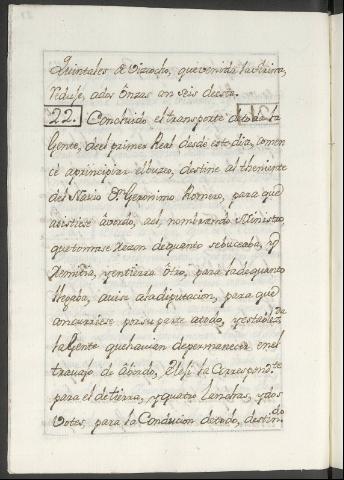 Quintales de Vizcocho, que venida la Arina,
reduje, a dos Onzas an seis de esta.
22. Concluido el transporte de toda la
Gente, deel primer Real desde este dia, comen
cé aprincipiar el buzeo, destine al theniente
del Navio Dn. Geronimo Romero, para que
asistiese â bordo, ael nombrando Ministro,
que tomase razon de quanto sebuceaba, y
remitia, y en tierra ôtro, para la de quanto
llegaba, avise ala diputacion, para que
concurriese por su parte atodo, y establezda.
la Gente que havian de permanecer en el
travajo de âbordo, Eleji la Correspondte.
para el de tierra, y quatro Lanchas, y dos
Votes, para la Conducion de todo, destindo.